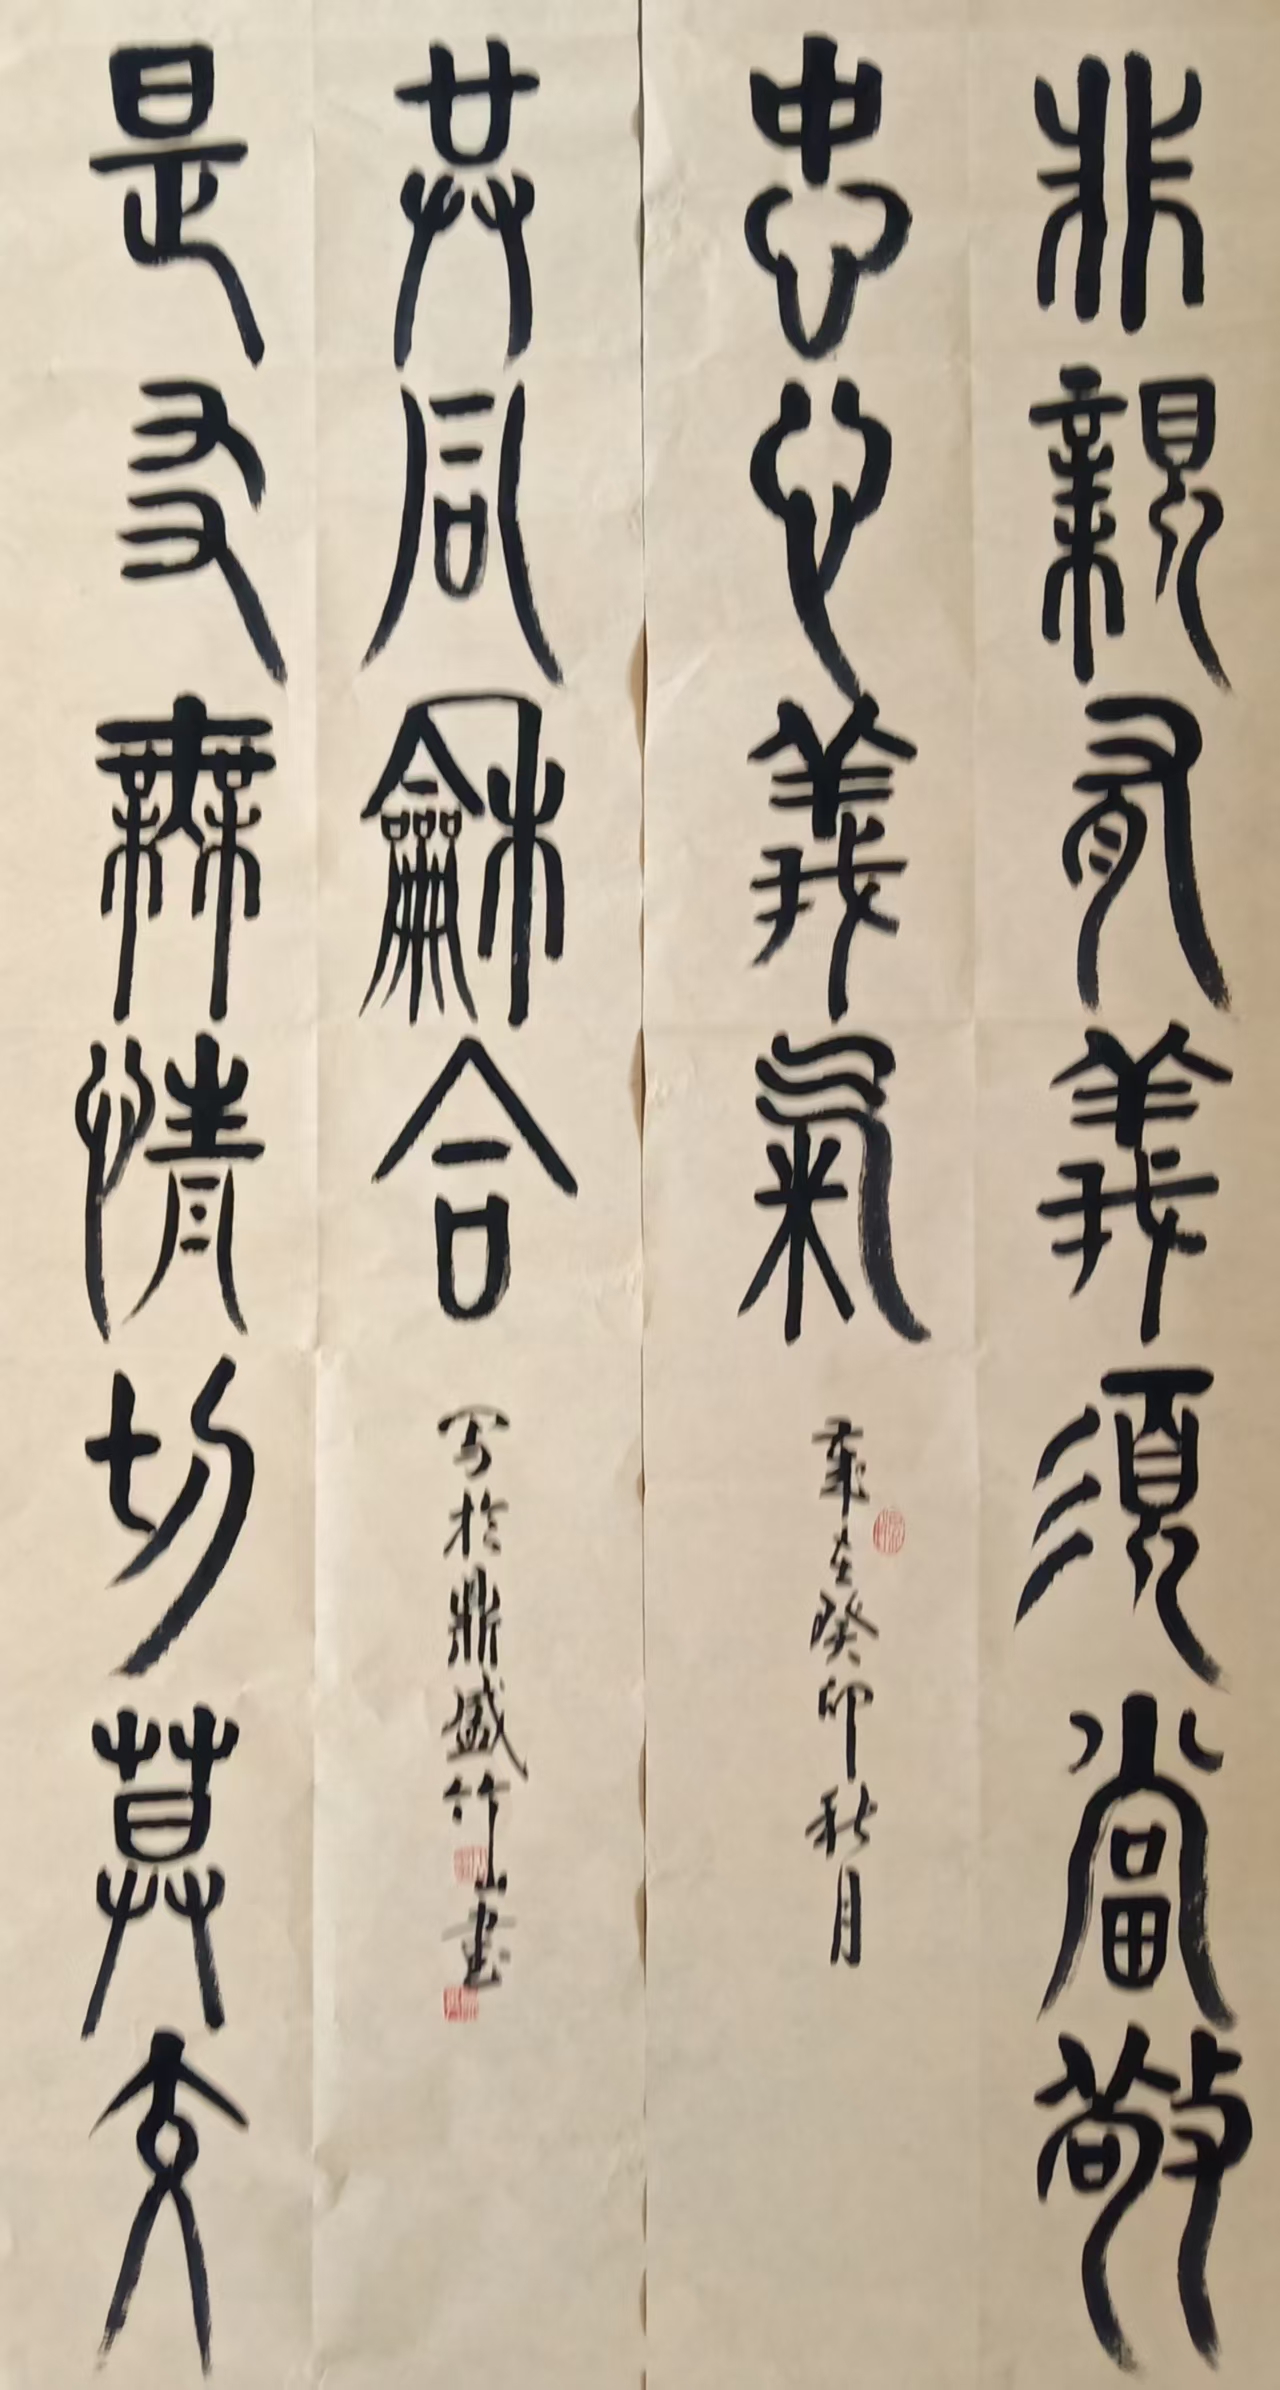 非親有義須當敬
忠心義氣
歲在癸卯秋月
是友無情切莫交
共同龢合
写於鼎盛竹山書